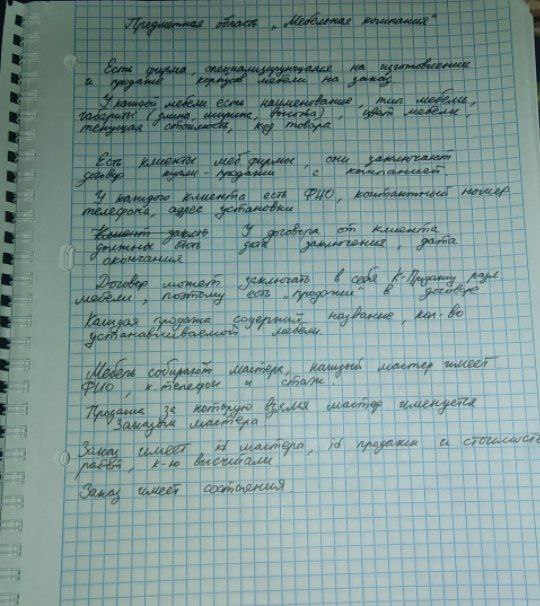 Предметная область „Мебельная компания"
Есть фирма, специализирующаяся на изготовлении
и продаже корпусн мебели на заказ.
У каждой мебели есть наименование, тип мебели,
габариты (длина, ширина, высота), цвет мебели,
текущая стоимость, код товара
Есть клиенты меб. фирмы, они заключают
договор купли-продажи с компанией.
У каждого клиента есть ФИО, контактный номер
телефона, адрес установки
Клиент заклю У договора от клиента
должны быть дата заключения, дата
окончания
Договор может заключать в себя К-Продажу разл
мебели, поэтому есть „продажи" в договоре
Каждая продажа содержит название, кол-во
устанавливаемой мебели.
Мебель собирают мастера, каждый мастер имеет
ФИО, к-телефон и стаж.
Продажа за которую взялся мастер именуется
Заказом мастера
Заказ имеет id мастера, id продажи и стоимость
работ, к-ю высчитали
Заказ имеет состояния.